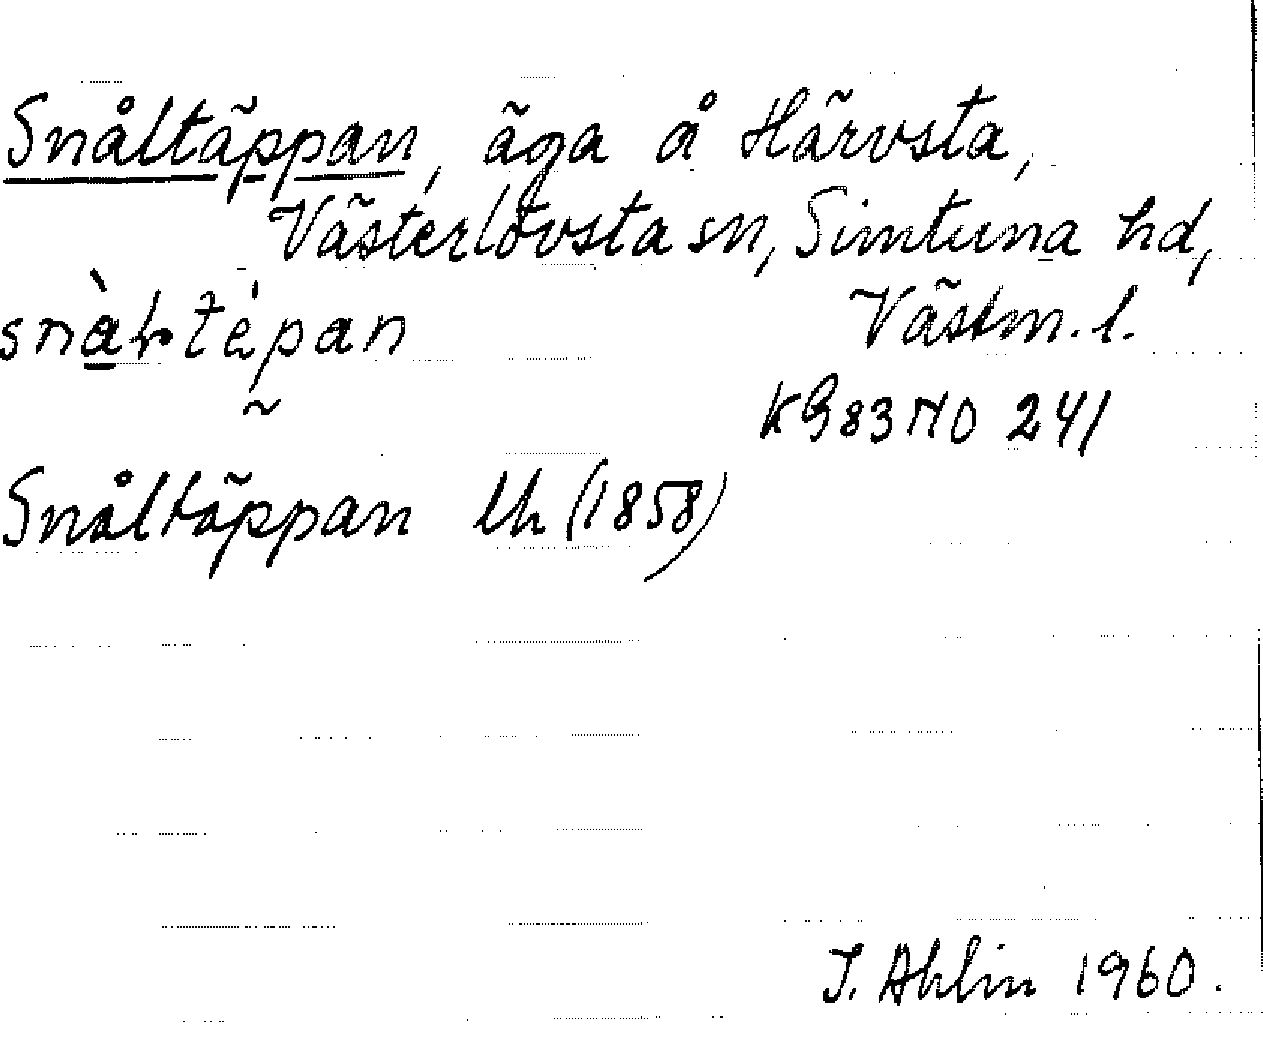 Snåltäppan, äga å Härvsta,
Västerlövsta sn, Simtuna hd,
Västm. l.
KG83NO 241
Snåltäppan lh (1858)
I. Ahlin 1960.